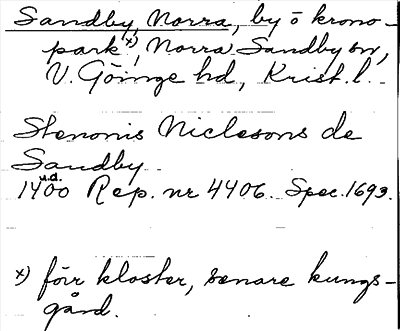 Sandby, Norra, by ō krono-
park x), Norra Sandby sn,
V. Göinge hd, Krist. l.
Stenonis Niclesons de
Sandby
u.d.
1400 Rep. nr 4406. Spec. 1693.
x) förr kloster, senare kungs-
gård.